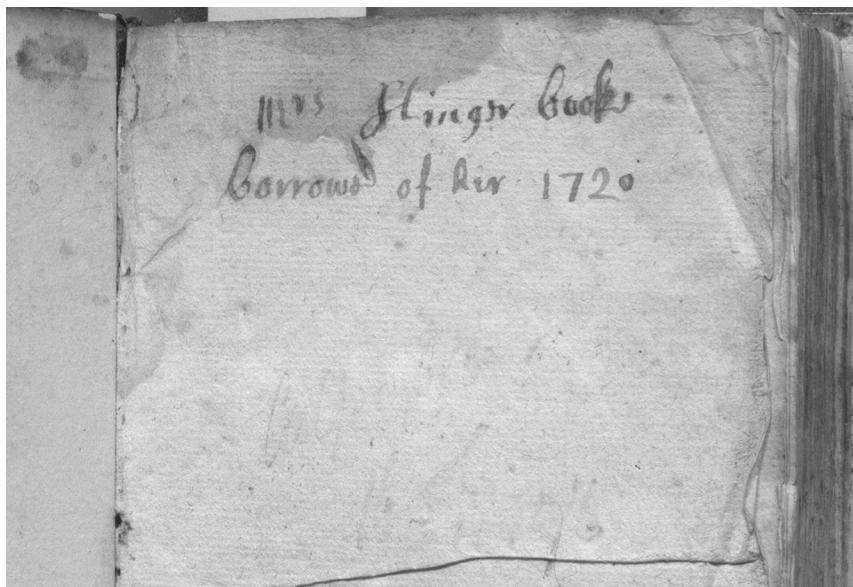 Mrs Slinger booke
borrowed of her 1720